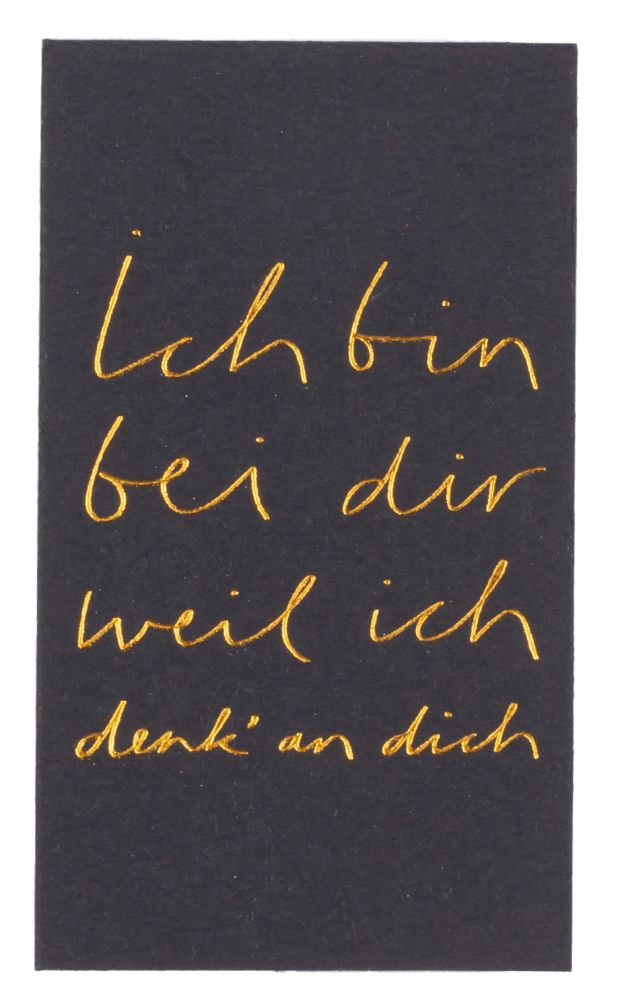 Ich bin
bei dir
weil ich
denk' an dich